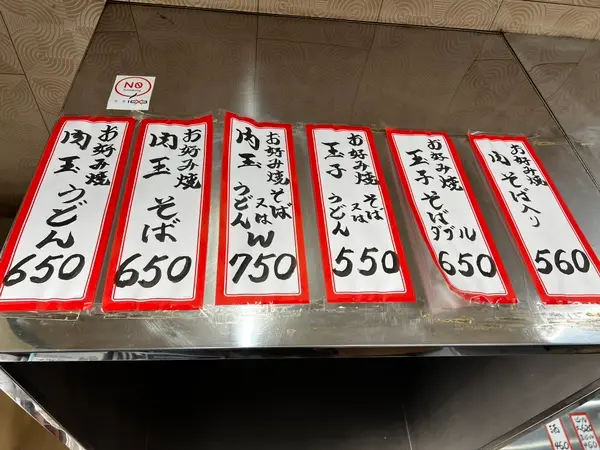 NO
お好み焼
肉玉うどん
650
お好み焼
肉玉そば
650
お好み焼
肉玉
そば
又は
うどん
W
750
お好み焼
玉子
そば
又は
うどん
550
お好み焼
玉子そば
ダブル
650
お好み焼
肉そば入り
560
酒
450